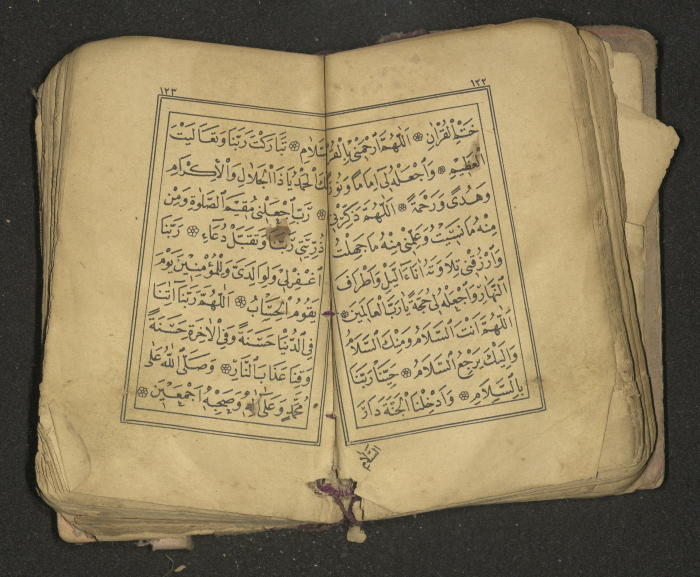 ١٢٢
خَتْمُ الْقُرْاٰنِ ۞ اَللّٰهُمَّ ارْحَمْنِى بِالْقُرْاٰنِ
الْعَظِيمِ ۞ وَاجْعَلْهُ لِى اِمَامًا وَنُورًا
وَهُدًى وَرَحْمَةً ۞ اَللّٰهُمَّ ذَكِّرْنِى
مِنْهُ مَا نَسِيتُ وَعَلِّمْنِى مِنْهُ مَا جَهِلْتُ
وَارْزُقْنِى تِلَاوَتَهُ اٰنَاءَ الَّيْلِ وَاَطْرَافَ
النَّهَارِ وَاجْعَلْهُ لِى حُجَّةً يَا رَبَّ الْعَالَمِينَ ۞
اَللّٰهُمَّ اَنْتَ السَّلَامُ وَمِنْكَ السَّلَامُ
وَاِلَيْكَ يَرْجِعُ السَّلَامُ ۞ حَيِّنَا رَبَّنَا
بِالسَّلَامِ ۞ وَاَدْخِلْنَا الْجَنَّةَ دَارَ
السَّلَامِ
١٢٣
السَّلَامِ ۞ تَبَارَكْتَ رَبَّنَا وَتَعَالَيْتَ
لَكَ الْحَمْدُ يَا ذَا الْجَلَالِ وَالْاِكْرَامِ
۞ رَبِّ اجْعَلْنِى مُقِيمَ الصَّلٰوةِ وَمِنْ
ذُرِّيَّتِى رَبَّنَا وَتَقَبَّلْ دُعَاءِ ۞ رَبَّنَا
اغْفِرْلِى وَلِوَالِدَىَّ وَلِلْمُؤْمِنِينَ يَوْمَ
يَقُومُ الْحِسَابُ ۞ اَللّٰهُمَّ رَبَّنَا اٰتِنَا
فِى الدُّنْيَا حَسَنَةً وَفِى الْاٰخِرَةِ حَسَنَةً
وَقِنَا عَذَابَ النَّارِ ۞ وَصَلَّى اللّٰهُ عَلٰى
مُحَمَّدٍ وَعَلٰى اٰلِهِ وَصَحْبِهِ اَجْمَعِينَ ۞